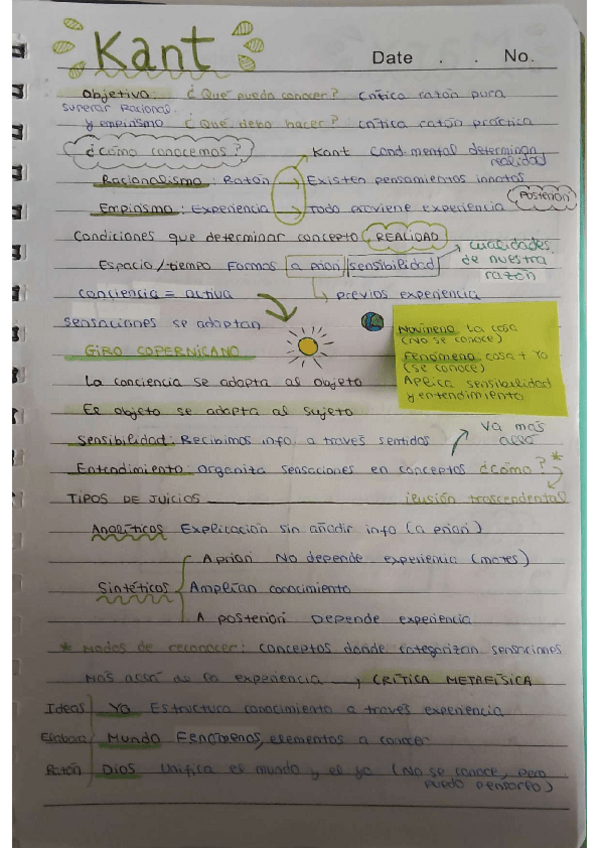 Kant
Date . . No.
Objetivo: ¿Qué puedo conocer? Crítica razón pura
superar Racional.
y empirismo ¿Qué debo hacer? Crítica razón práctica
¿Cómo conocemos? Kant Cond. mental determinan
realidad
Racionalismo: Razón → Existen pensamientos innatos
Posteriori
Empirismo: Experiencia → Todo proviene experiencia
Condiciones que determinar concepto REALIDAD
Espacio/tiempo Formas a priori sensibilidad → cualidades
de nuestra
razón
conciencia = activa → previos experiencia
sensaciones se adaptan
GIRO COPERNICANO
Noúmeno La cosa
(No se conoce)
Fenómeno cosa + Yo
(se conoce)
Aplica sensibilidad
y entendimiento
La conciencia se adapta al objeto
El objeto se adapta al sujeto
Sensibilidad: Recibimos info. a través sentidos
Va más
allá
Entendimiento: Organiza sensaciones en conceptos ¿cómo? *
TIPOS DE JUICIOS ilusión trascendental
Analíticos Explicación sin añadir info (a priori)
A priori No depende experiencia (mates)
Sintéticos Amplían conocimiento
A posteriori Depende experiencia
* Modos de reconocer: conceptos donde categorizan sensaciones
Más allá de la experiencia → CRÍTICA METAFÍSICA
Ideas Yo Estructura conocimiento a través experiencia
Elabora Mundo Fenómenos, elementos a conocer
Razón Dios Unifica el mundo y el yo (No se conoce, pero
puedo pensarlo)